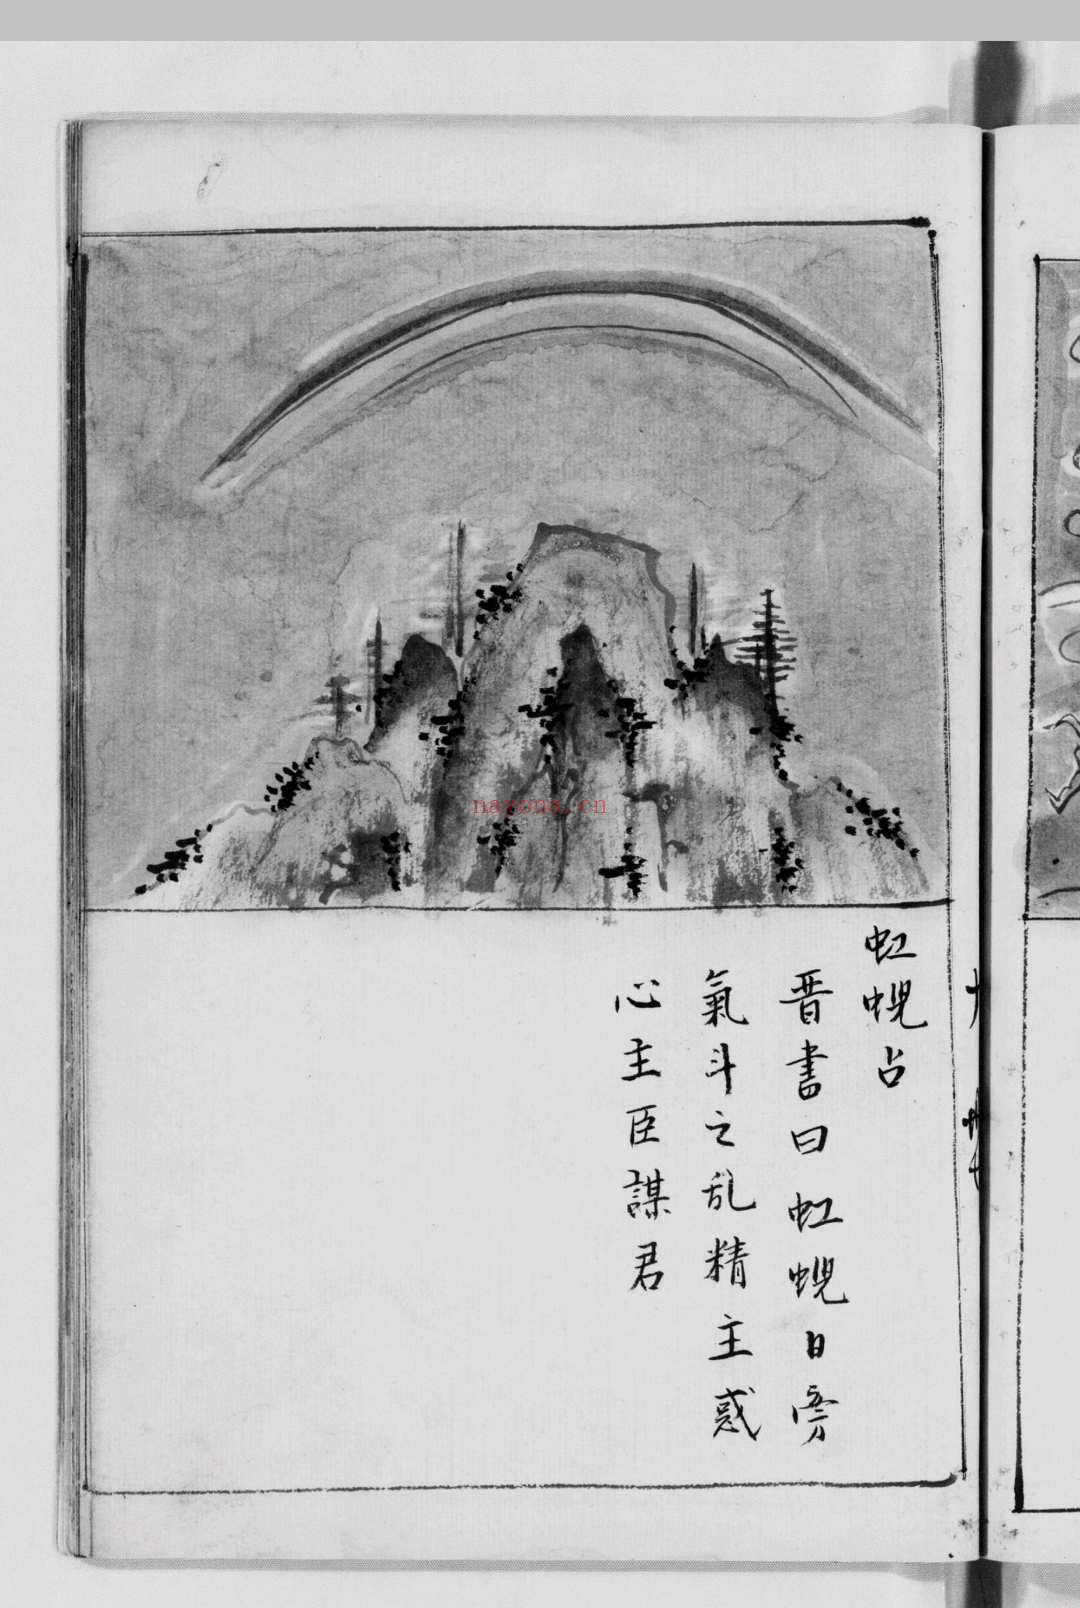 虹蜺占
晋書曰虹蜺日旁
氣斗之乱精主惑
心主臣謀君
nayona.cn